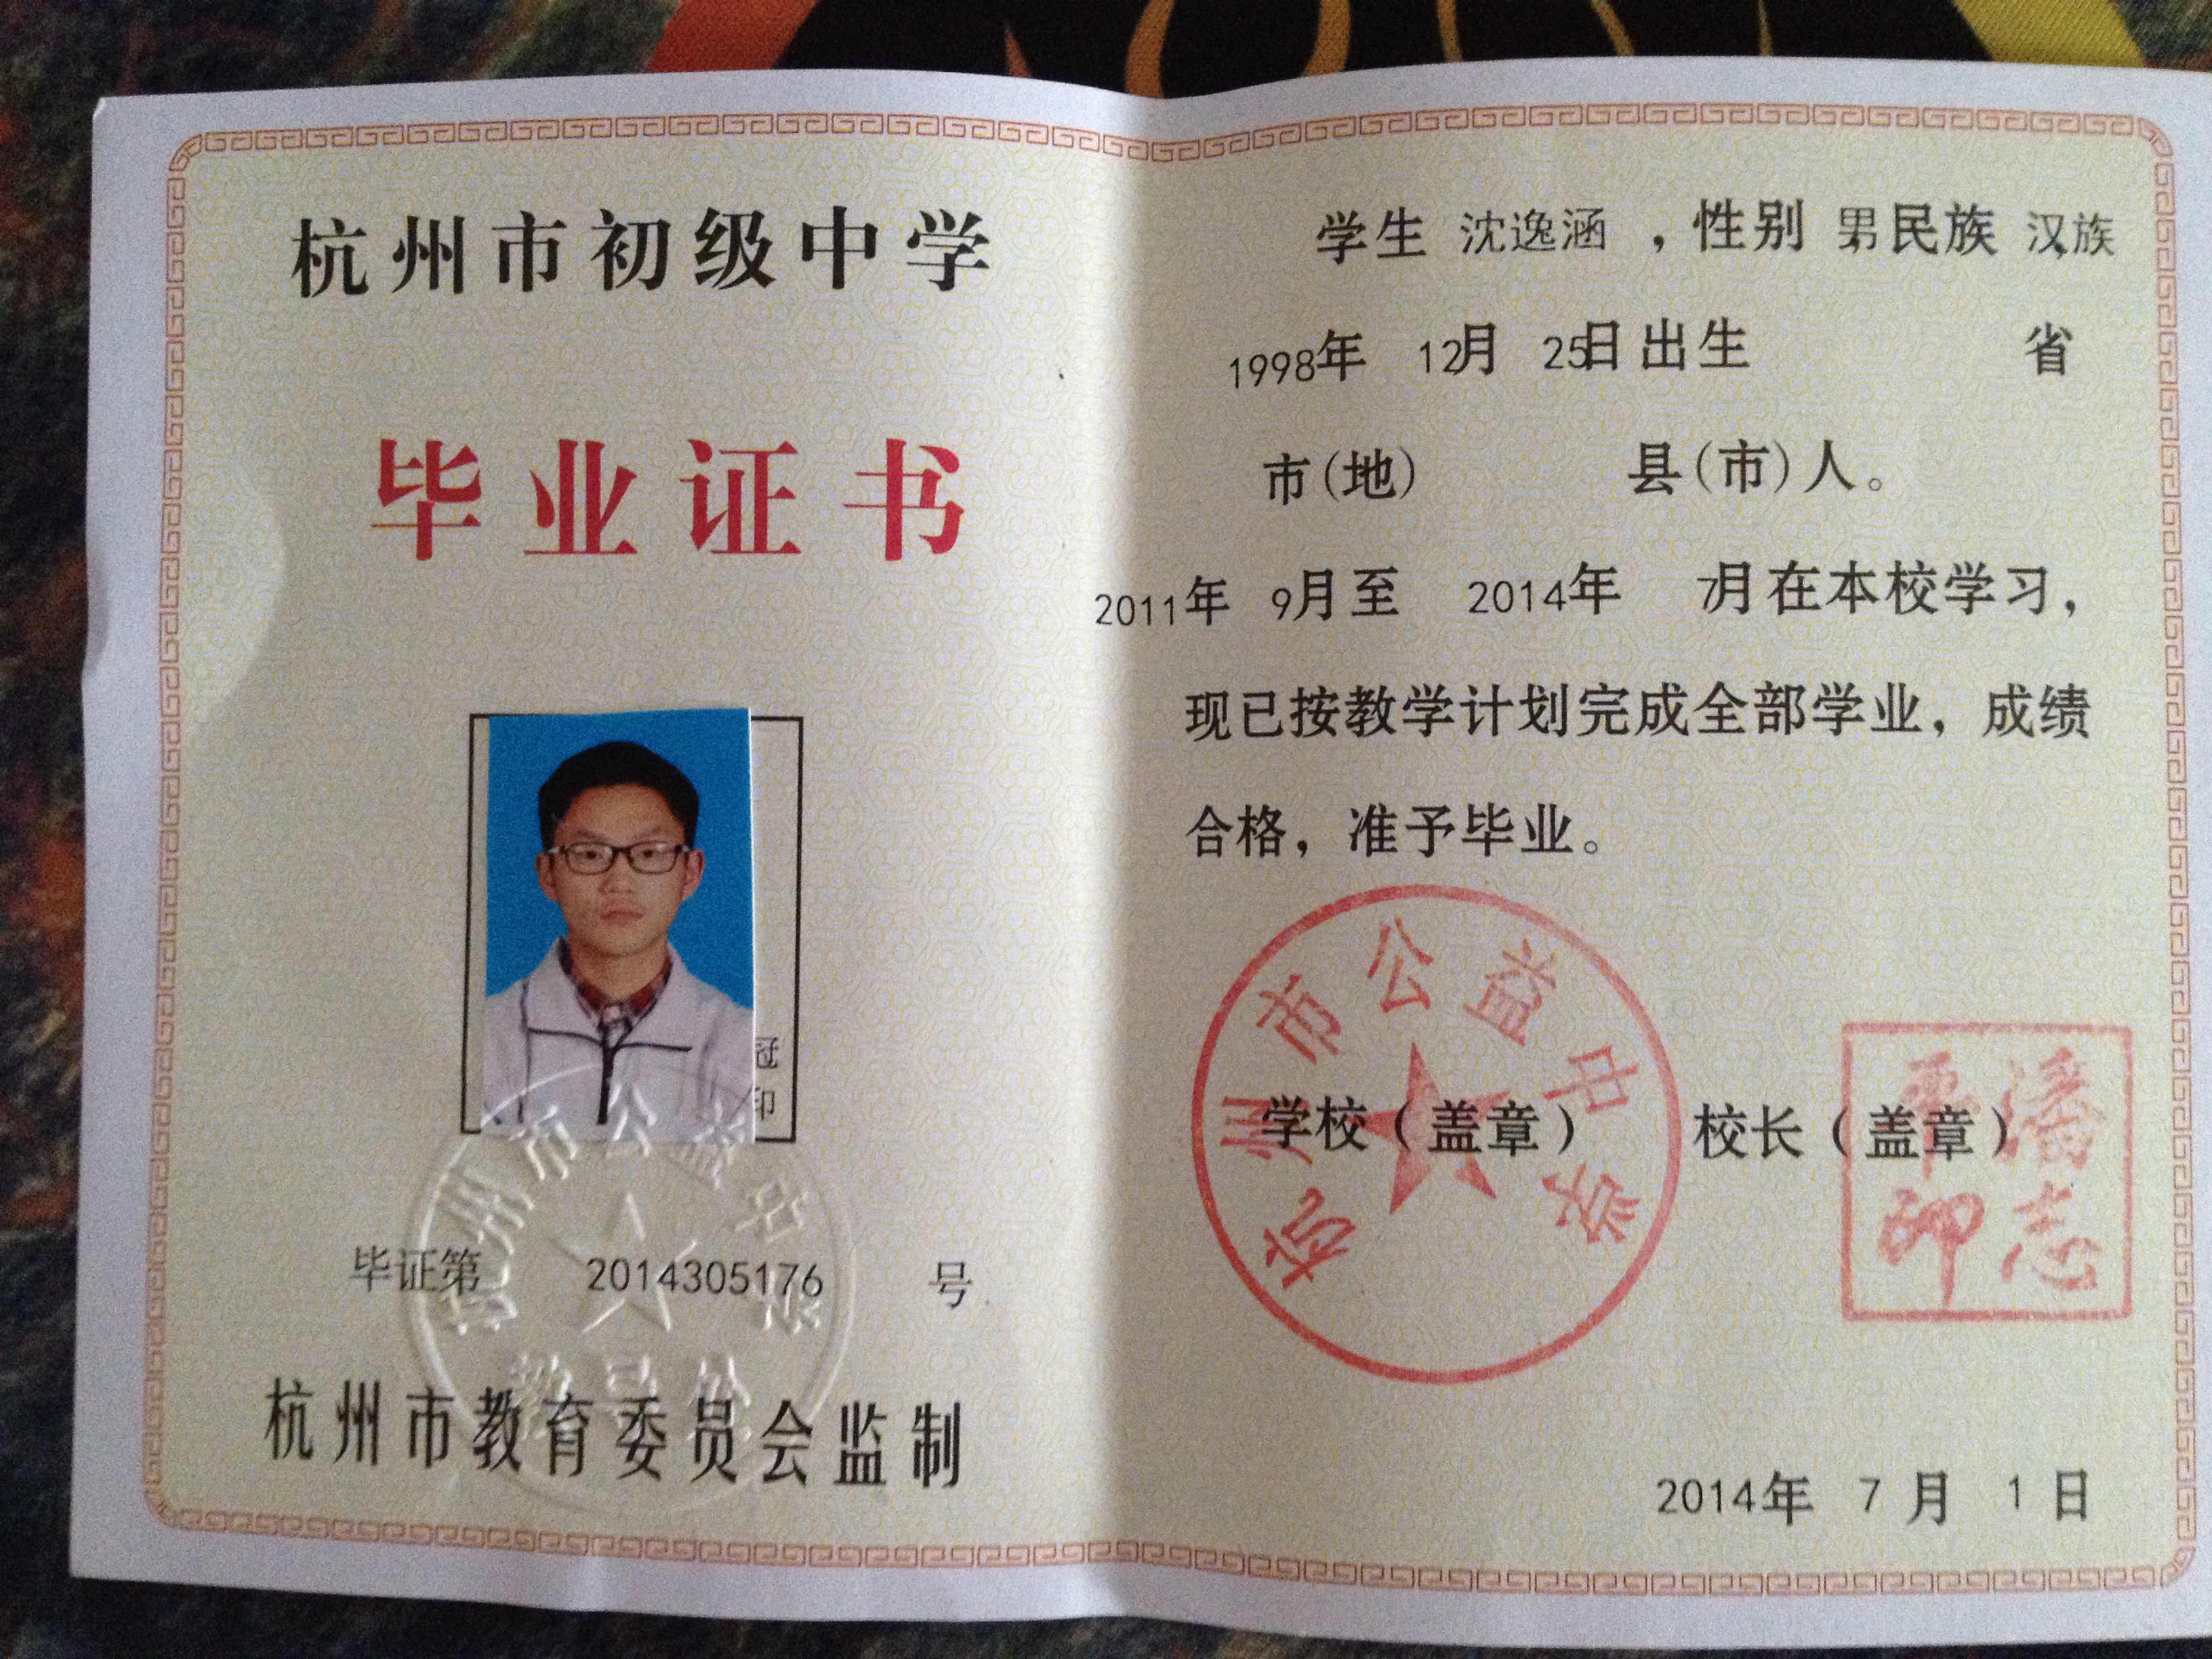 杭州市初级中学
毕业证书
冠
印
毕证第 2014305176 号
杭州市教育委员会监制
学生 沈逸涵 ，性别 男民族 汉族
1998年 12月 25日出生 省
市(地) 县(市)人。
2011年 9月至 2014年 7月在本校学习，
现已按教学计划完成全部学业，成绩
合格，准予毕业。
杭州市公益中学
学校（盖章） 校长（盖章）
潘志平印
2014年 7 月 1 日
杭州市公益中学